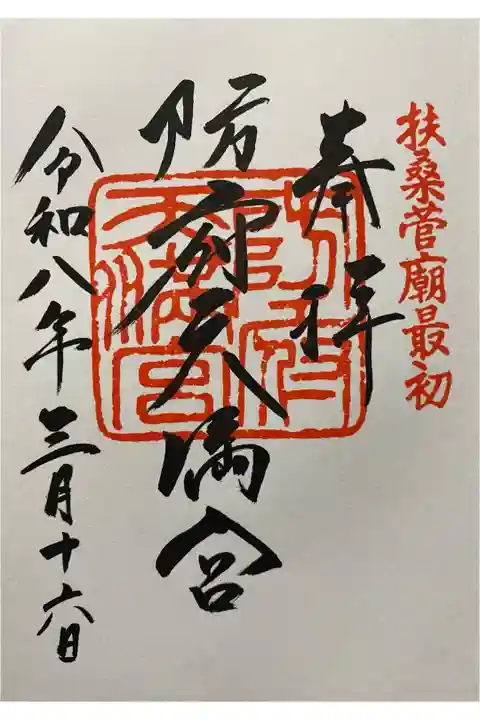 扶桑菅廟最初
奉拝
防府天満宮
防府天満宮
令和八年三月十六日